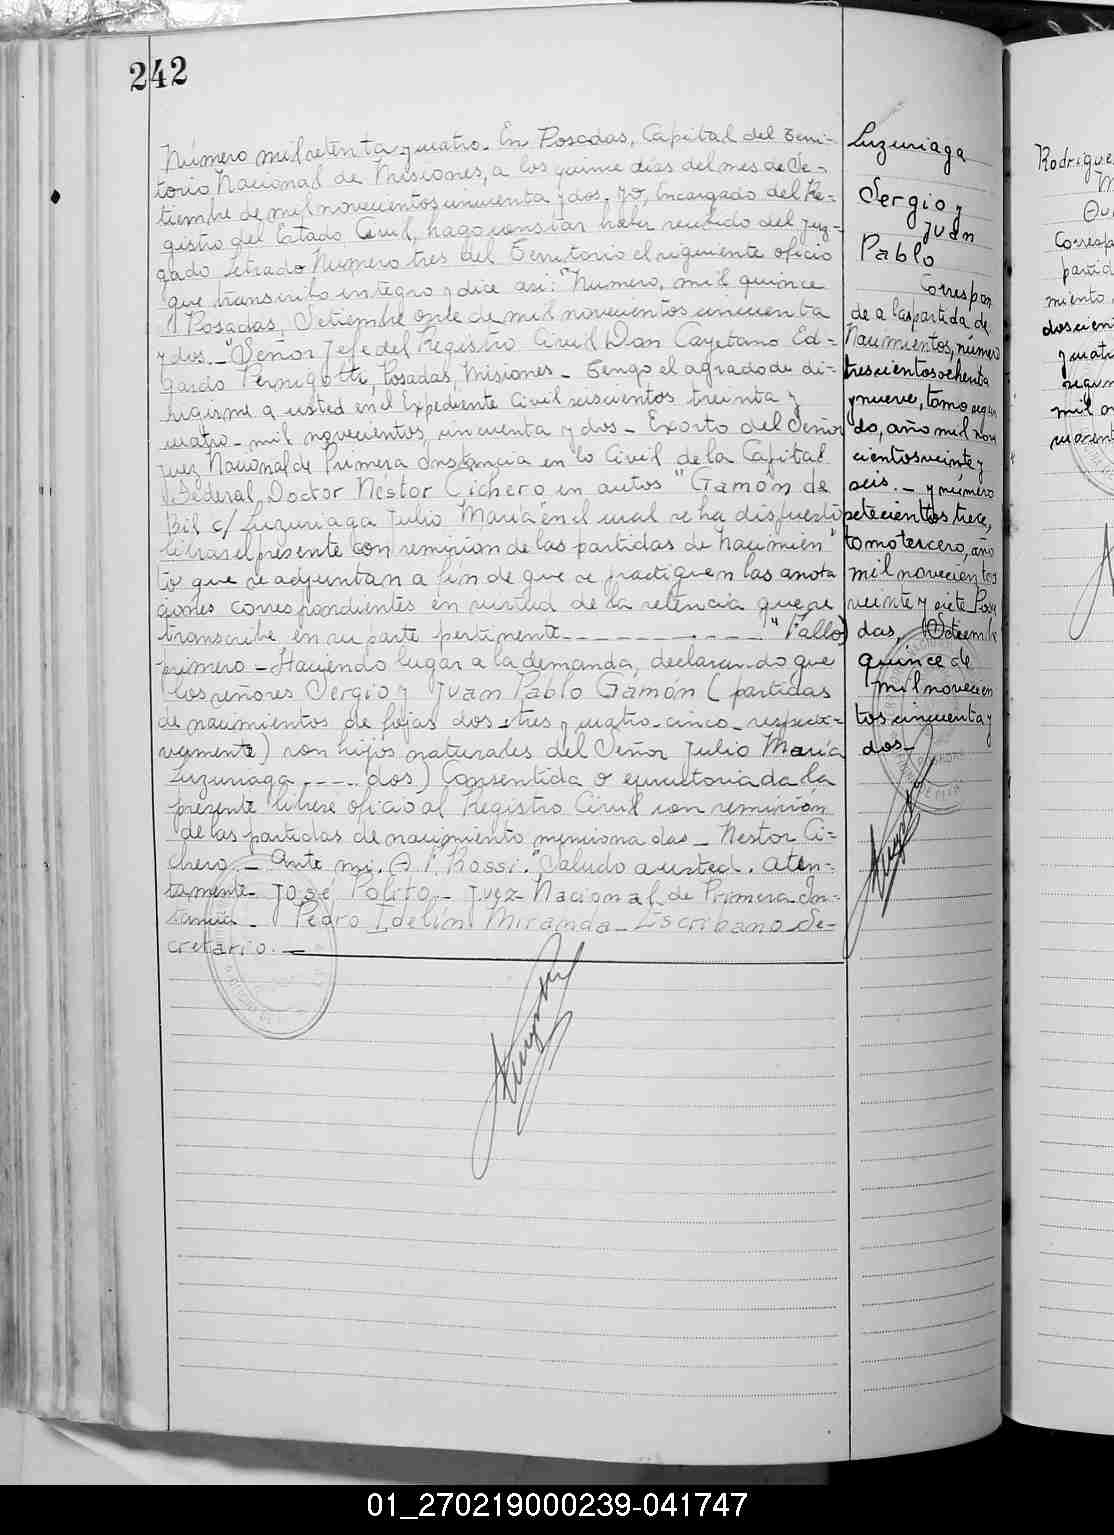 242
Número mil setenta y cuatro. En Posadas, Capital del Terri-
torio Nacional de Misiones, a los quince días del mes de Se-
tiembre de mil novecientos cincuenta y dos. Yo, Encargado del Re-
gistro del Estado Civil, hago constar haber recibido del Juz-
gado Letrado Número tres del Territorio el siguiente oficio
que transcribo integro y dice asi: "Numero, mil quince
Posadas, Setiembre once de mil novecientos cincuenta
y dos._ "Señor Jefe del Registro Civil Don Cayetano Ed-
gardo Pernigotti, Posadas, Misiones_ Tengo el agrado de di-
rigirme a usted en el Expediente Civil seiscientos treinta y
cuatro_ mil novecientos cincuenta y dos_ Exorto del Señor
Juez Nacional de Primera Instancia en lo Civil de la Capital
Federal Doctor Néstor Cichero en autos "Gamón de
Bil c/ Luzuriaga Julio María" en el cual se ha dispuesto
librar el presente con remision de las partidas de nacimien"
to que se adjuntan a fin de que se practiquen las anota
ciones correspondientes en virtud de la setencia que se
transcribe en su parte pertinente_ _ _ _ _ _ "Fallo)
primero_ Haciendo lugar a la demanda, declarando que
los señores Sergio y Juan Pablo Gamón (partidas
de nacimientos de fojas dos_ tres y cuatro_ cinco_ respecti-
vamente) son hijos naturales del Señor Julio María
Luzuriaga _ _ _ _ dos) Consentida o ejecutoriada la
presente librese oficio al Registro Civil con remisión
de las partidas de nacimiento mencionadas_ Nestor Ci-
chero_ Ante mi. A. Rossi. "Saludo a usted. aten-
tamente_ José Polito_ Juez Nacional de Primera In-
tancia_ Pedro Idelin Miranda_ Escribano Se-
cretario._
Luzuriaga
Sergio y
Juan
Pablo
Correspon
de a las partida de
Nacimientos, número
trescientos ochenta
y nueve, tomo segun
do, año mil nove
cientos veinte y
seis._ y número
setecientos trece,
tomo tercero, año
mil novecientos
veinte y siete Posa
das, Setiembre
quince de
mil novecien
tos cincuenta y
dos_
Rodrigue
Corresp
partid
miento
doscien
y cuatr
segun
mil
01_270219000239-041747